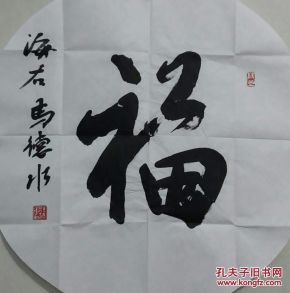 福
海右馬德水
孔夫子旧书网
www.kongfz.com